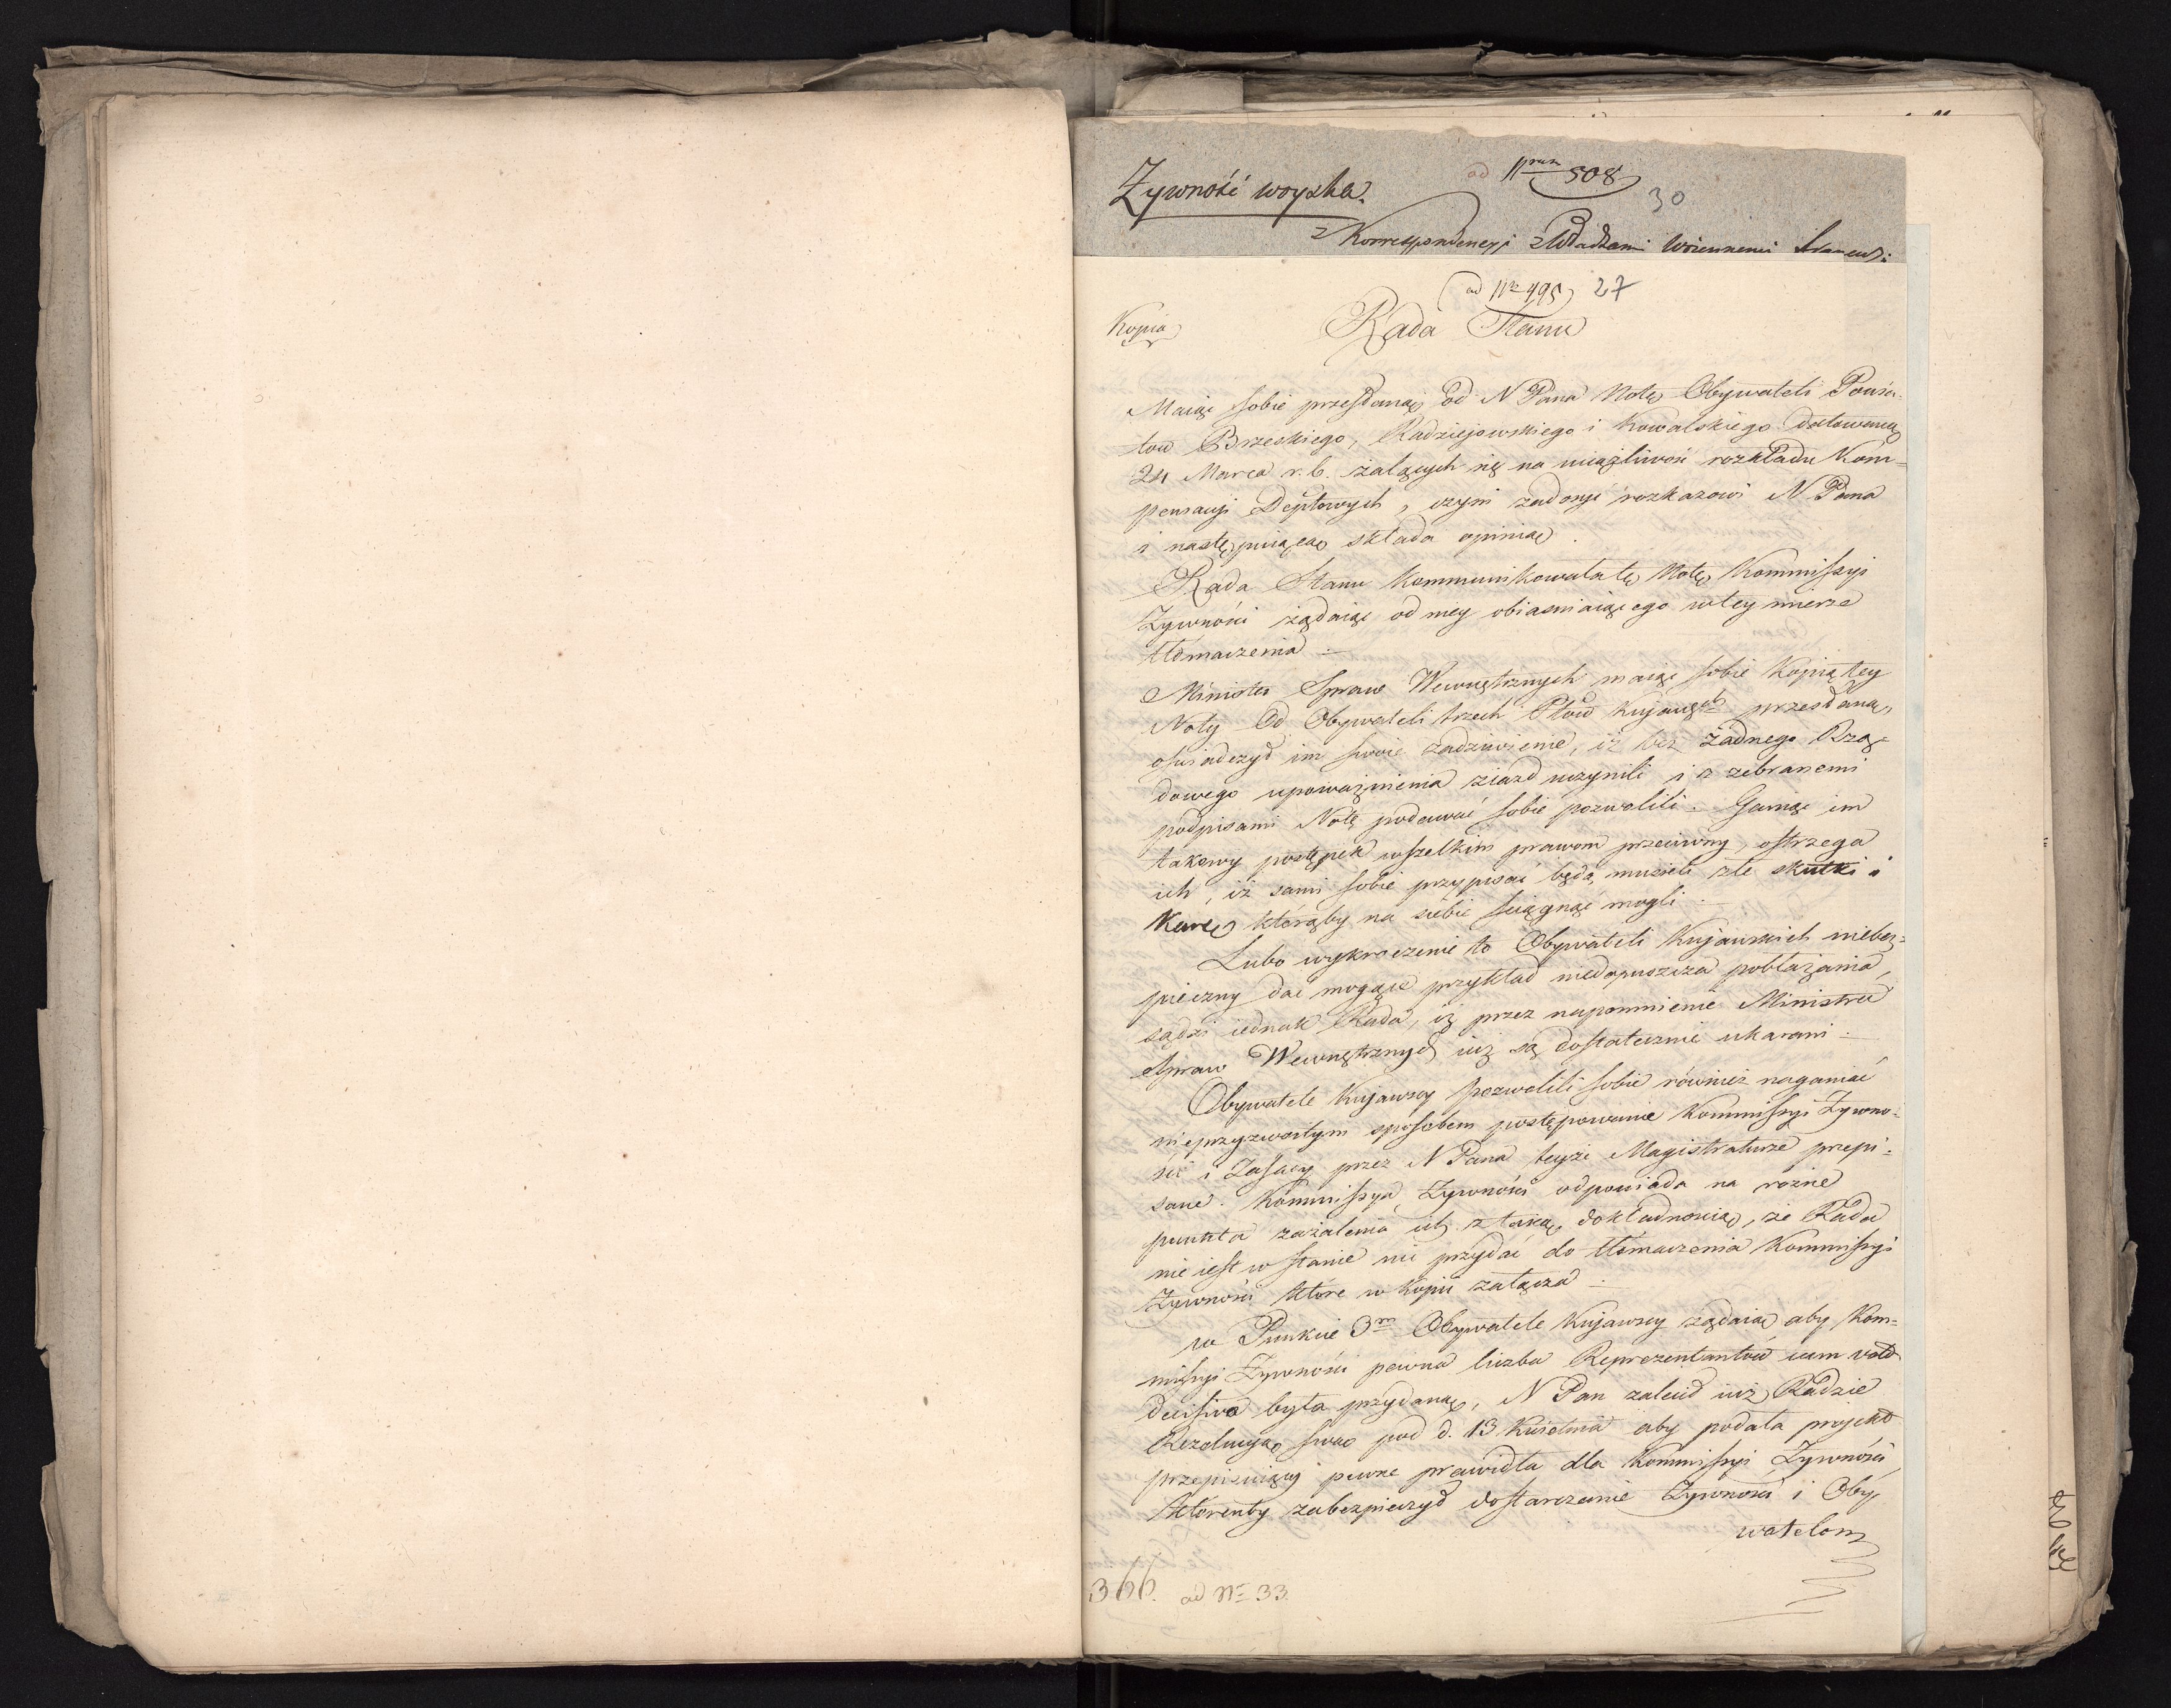 Żywność woyska.
ad Nrum 508
30
z Korrespondencyi z Władzami Woiennemi
ad Nr 495 27
Kopia
Rada Stanu
Maiąc sobie przesłaną od N Pana Notę Obywateli Powia-
tow Brzeskiego, Radziejowskiego i Kowalskiego datowaną
24 Marca r. b. żalących się na uciążliwość rozkładu Kom-
pensacyi Deptowych, czyni zadosyć rozkazowi N Pana
i następuiącą składa opinią.
Rada Stanu kommunikowała tę Notę Kommissyi
Żywności żądaiąc od niey obiasniaiącego w tey mierze
tłómaczenia.
Minister Spraw Wewnętrznych maiąc sobie Kopią tey
Noty od Obywateli trzech Ptow Kujawsch przesłaną,
oświadczył im swoie zadziwienie, iż bez żadnego Rzą-
dowego upoważnienia ziazd uczynili i z zebranemi
podpisami Notę podawać sobie pozwolili. Ganiąc im
takowy postępek wszelkim prawom przeciwny, ostrzega
ich, iż sami sobie przypisać będą musieli złe skutki i
Karę, którąby na siebie sciągnąć mogli.
Lubo wykroczenie to Obywateli Kujawskich niebez-
pieczny dać mogące przykład niedopuszcza pobłażania,
sądzi iednak Rada, iż przez napomnienie Ministra
Spraw Wewnętrznych iuż są dostatecznie ukarani.
Obywatele Kujawscy pozwolili sobie również naganiać
nieprzyzwoitym sposobem postępowanie Kommissyi Żywno-
ści i Zasady przez N Pana teyże Magistraturze przepi-
sane. Kommissya Żywności odpowiada na rożne
punkta zażalenia ich z taką dokładnością, że Rada
nie iest w stanie nic przydać do tłómaczenia Kommissyi
Żywności które w kopii załącza.
w Punkcie 3m Obywatele Kujawscy żądaią aby Kom-
missyi Żywności pewna liczba Reprezentantow cum voto
decisivo była przydaną, N Pan zalecił iuż Radzie
Rezolucyą swą pod d. 13 Kwietnia aby podała projekt
przepisuiący pewne prawidła dla Kommissyi Żywności
któremby zabezpieczył dostarczenie Żywności i Oby-
watelom
366. ad No 33.